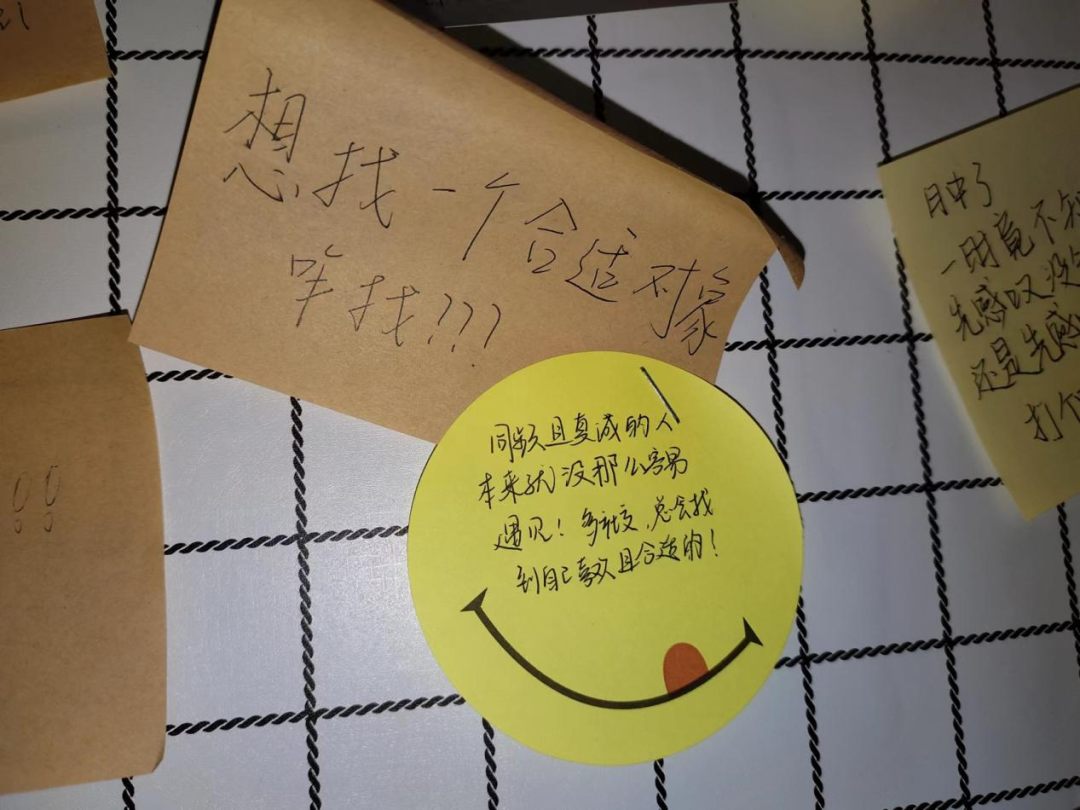 想找一个合适对象
咋找???
同频且真诚的人
本来就没那么容易
遇见!多社交,总会找
到自己喜欢且合适的!
日中了
一时竟不知
先感叹没
还是先感
打个